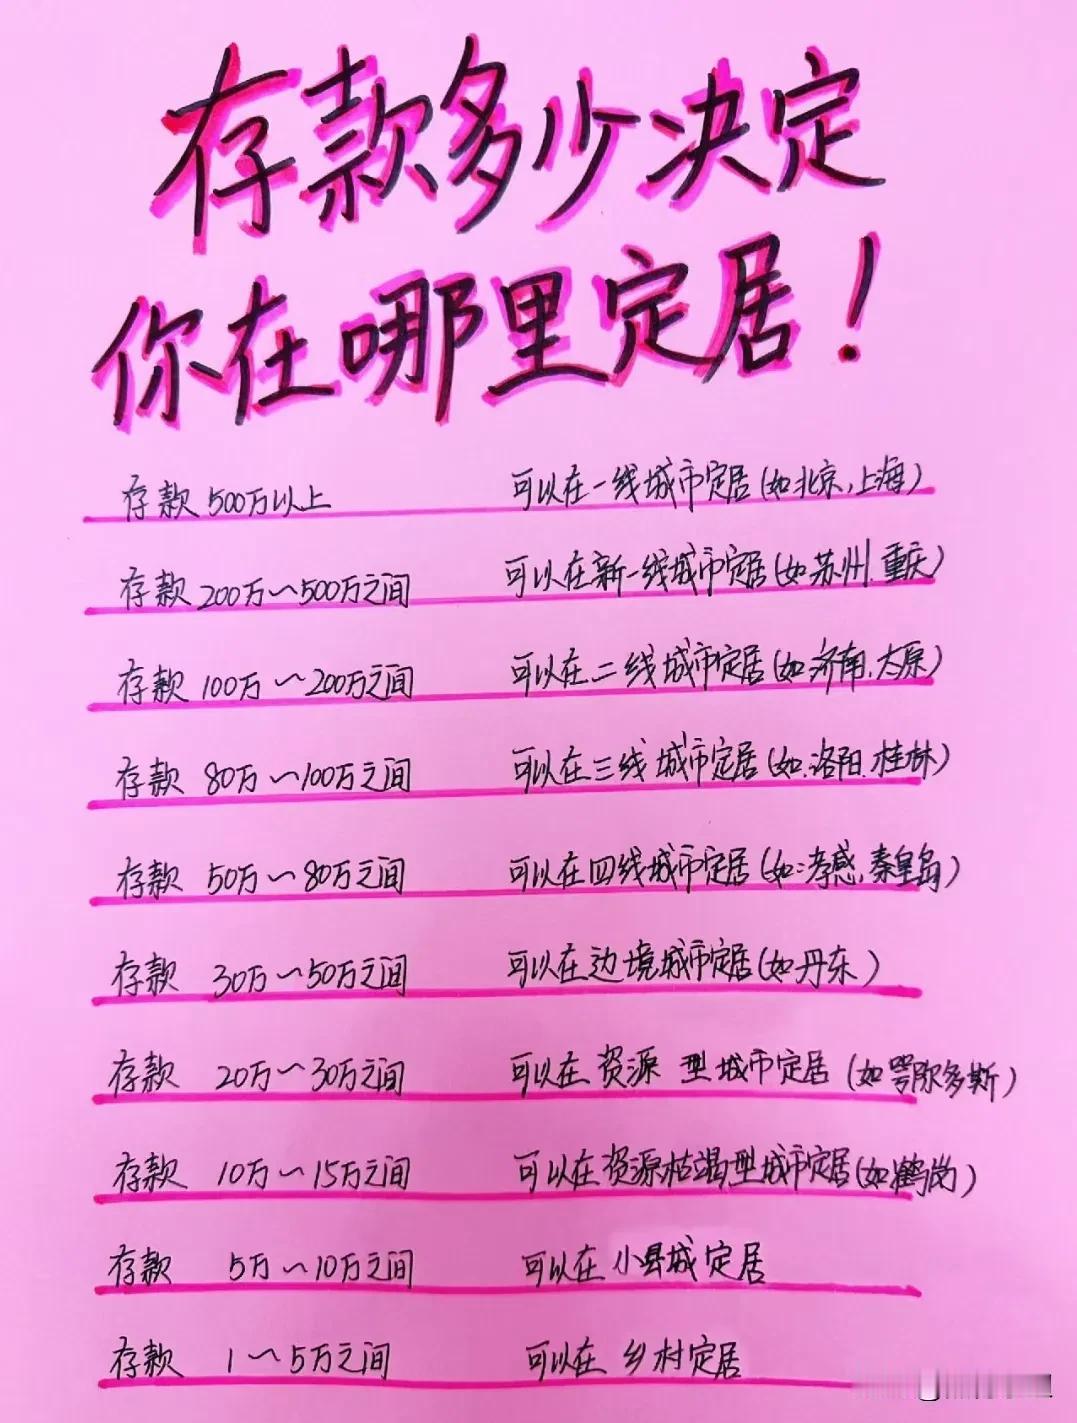 存款多少决定
你在哪里定居！
存款 500万以上 可以在一线城市定居(如北京,上海)
存款 200万~500万之间 可以在新一线城市定居(如苏州.重庆)
存款 100万~200万之间 可以在二线城市定居(如济南.太原)
存款 80万~100万之间 可以在三线城市定居(如.洛阳.桂林)
存款 50万~80万之间 可以在四线城市定居(如:孝感,秦皇岛)
存款 30万~50万之间 可以在边境城市定居(如丹东)
存款 20万~30万之间 可以在资源型城市定居(如鄂尔多斯)
存款 10万~15万之间 可以在资源枯竭型城市定居(如鹤岗)
存款 5万~10万之间 可以在小县城定居
存款 1~5万之间 可以在乡村定居